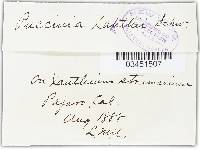 Puccinia Xanthii Schw.
03451507
on Xanthium strumarium
Pajaro, Cal
Aug 1888